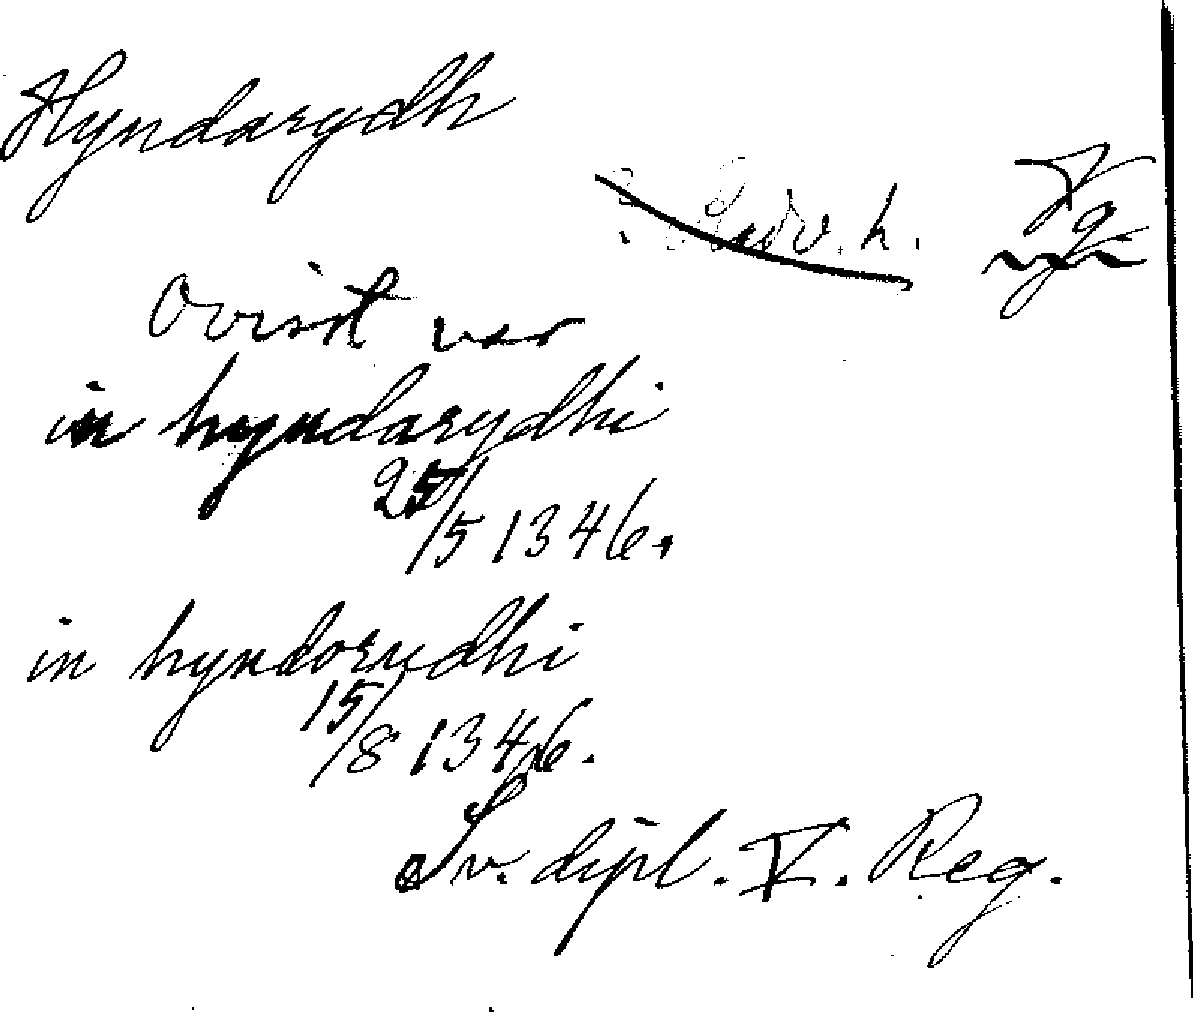 Hyndarydh
h. Vg
Ovisst var
in hyndarydhi
25/5 1346.
in hyndorydhi
15/8 1346.
Sv. dipl. V. Reg.